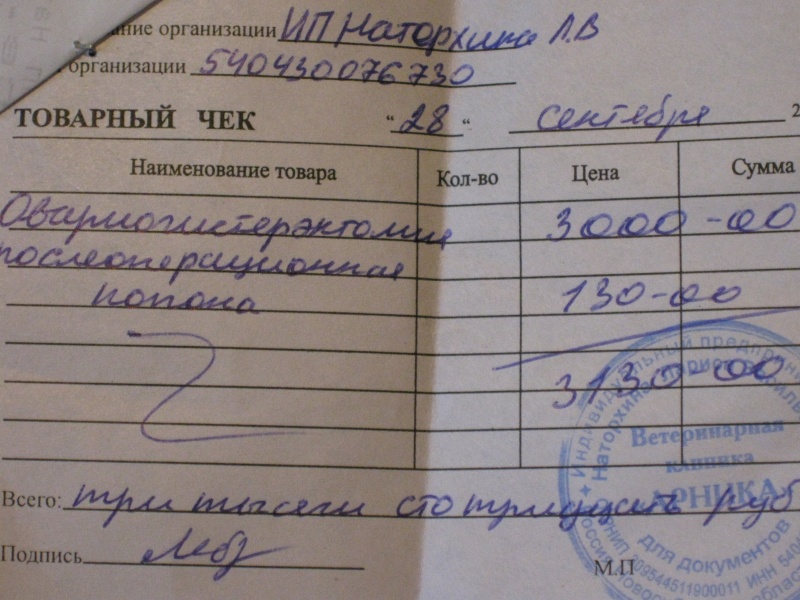 ание организации ИП Наторхина Л.В
организации 540430076730
ТОВАРНЫЙ ЧЕК "28" сентября 2
Наименование товара Кол-во Цена Сумма
Овариогистерэктомия 3000-00
послеоперационная
попона 130-00
3130-00
Всего: три тысячи сто тридцать руб
Подпись
М.П
Индивидуальный предприни
Наторхина Лариса
Ветеринарная
клиника
АРНИКА
для документов
ОГРНИП 309544511900011 ИНН 5404